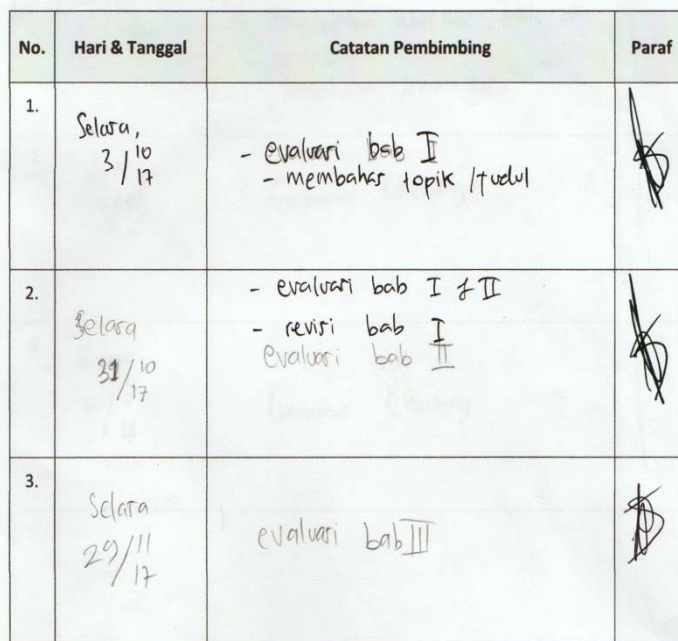 No. Hari & Tanggal Catatan Pembimbing Paraf
1.
Selasa,
3/10
17
- evaluasi bab I
- membahas topik / judul
2.
Selasa
31/10
17
- evaluasi bab I & II
- revisi bab I
evaluasi bab II
3.
Selasa
29/11
17
evaluasi bab III